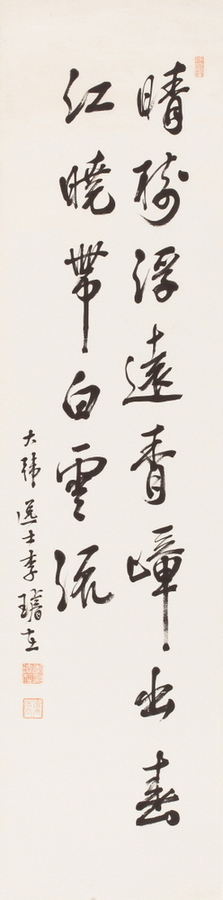 晴樹浮遠青嶂出春
江曉帶白雲流
大韓逸士李